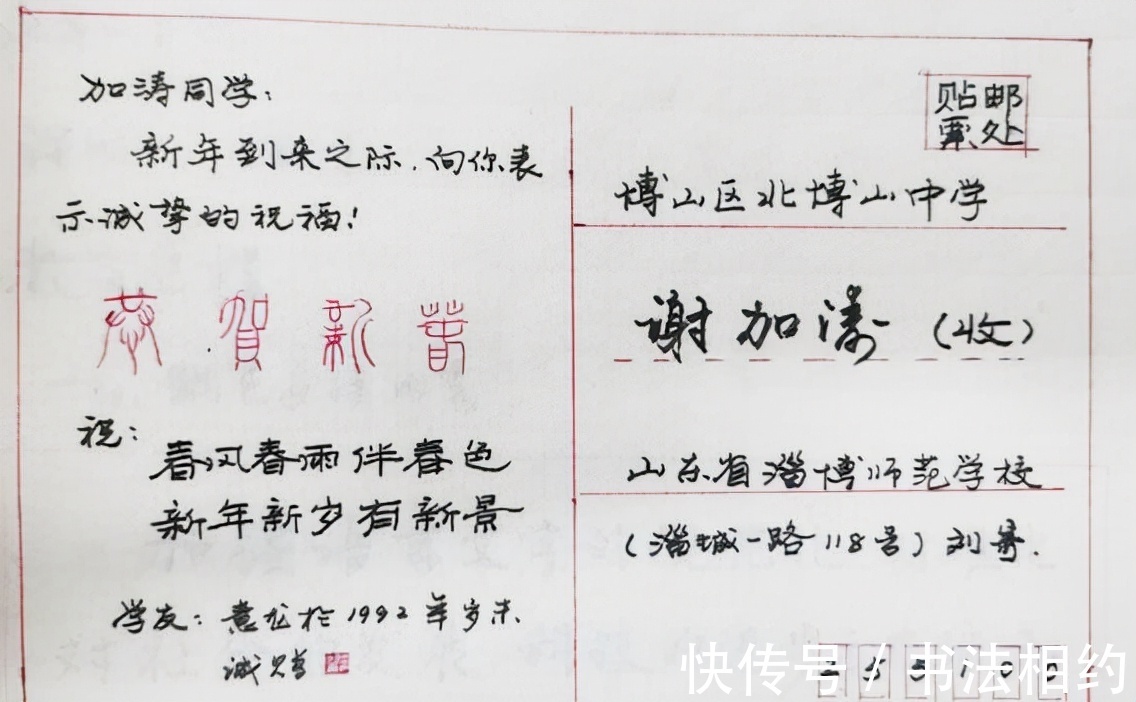 加涛同学：
新年到来之际，向你表
示诚挚的祝福！
恭贺新春
祝：
春风春雨伴春色
新年新岁有新景
学友：意龙于1992年岁末
诚贺
贴邮
票处
博山区北博山中学
谢加涛（收）
山东省淄博师范学校
（淄城一路118号）刘寄.
255100
快传号 / 书法相约